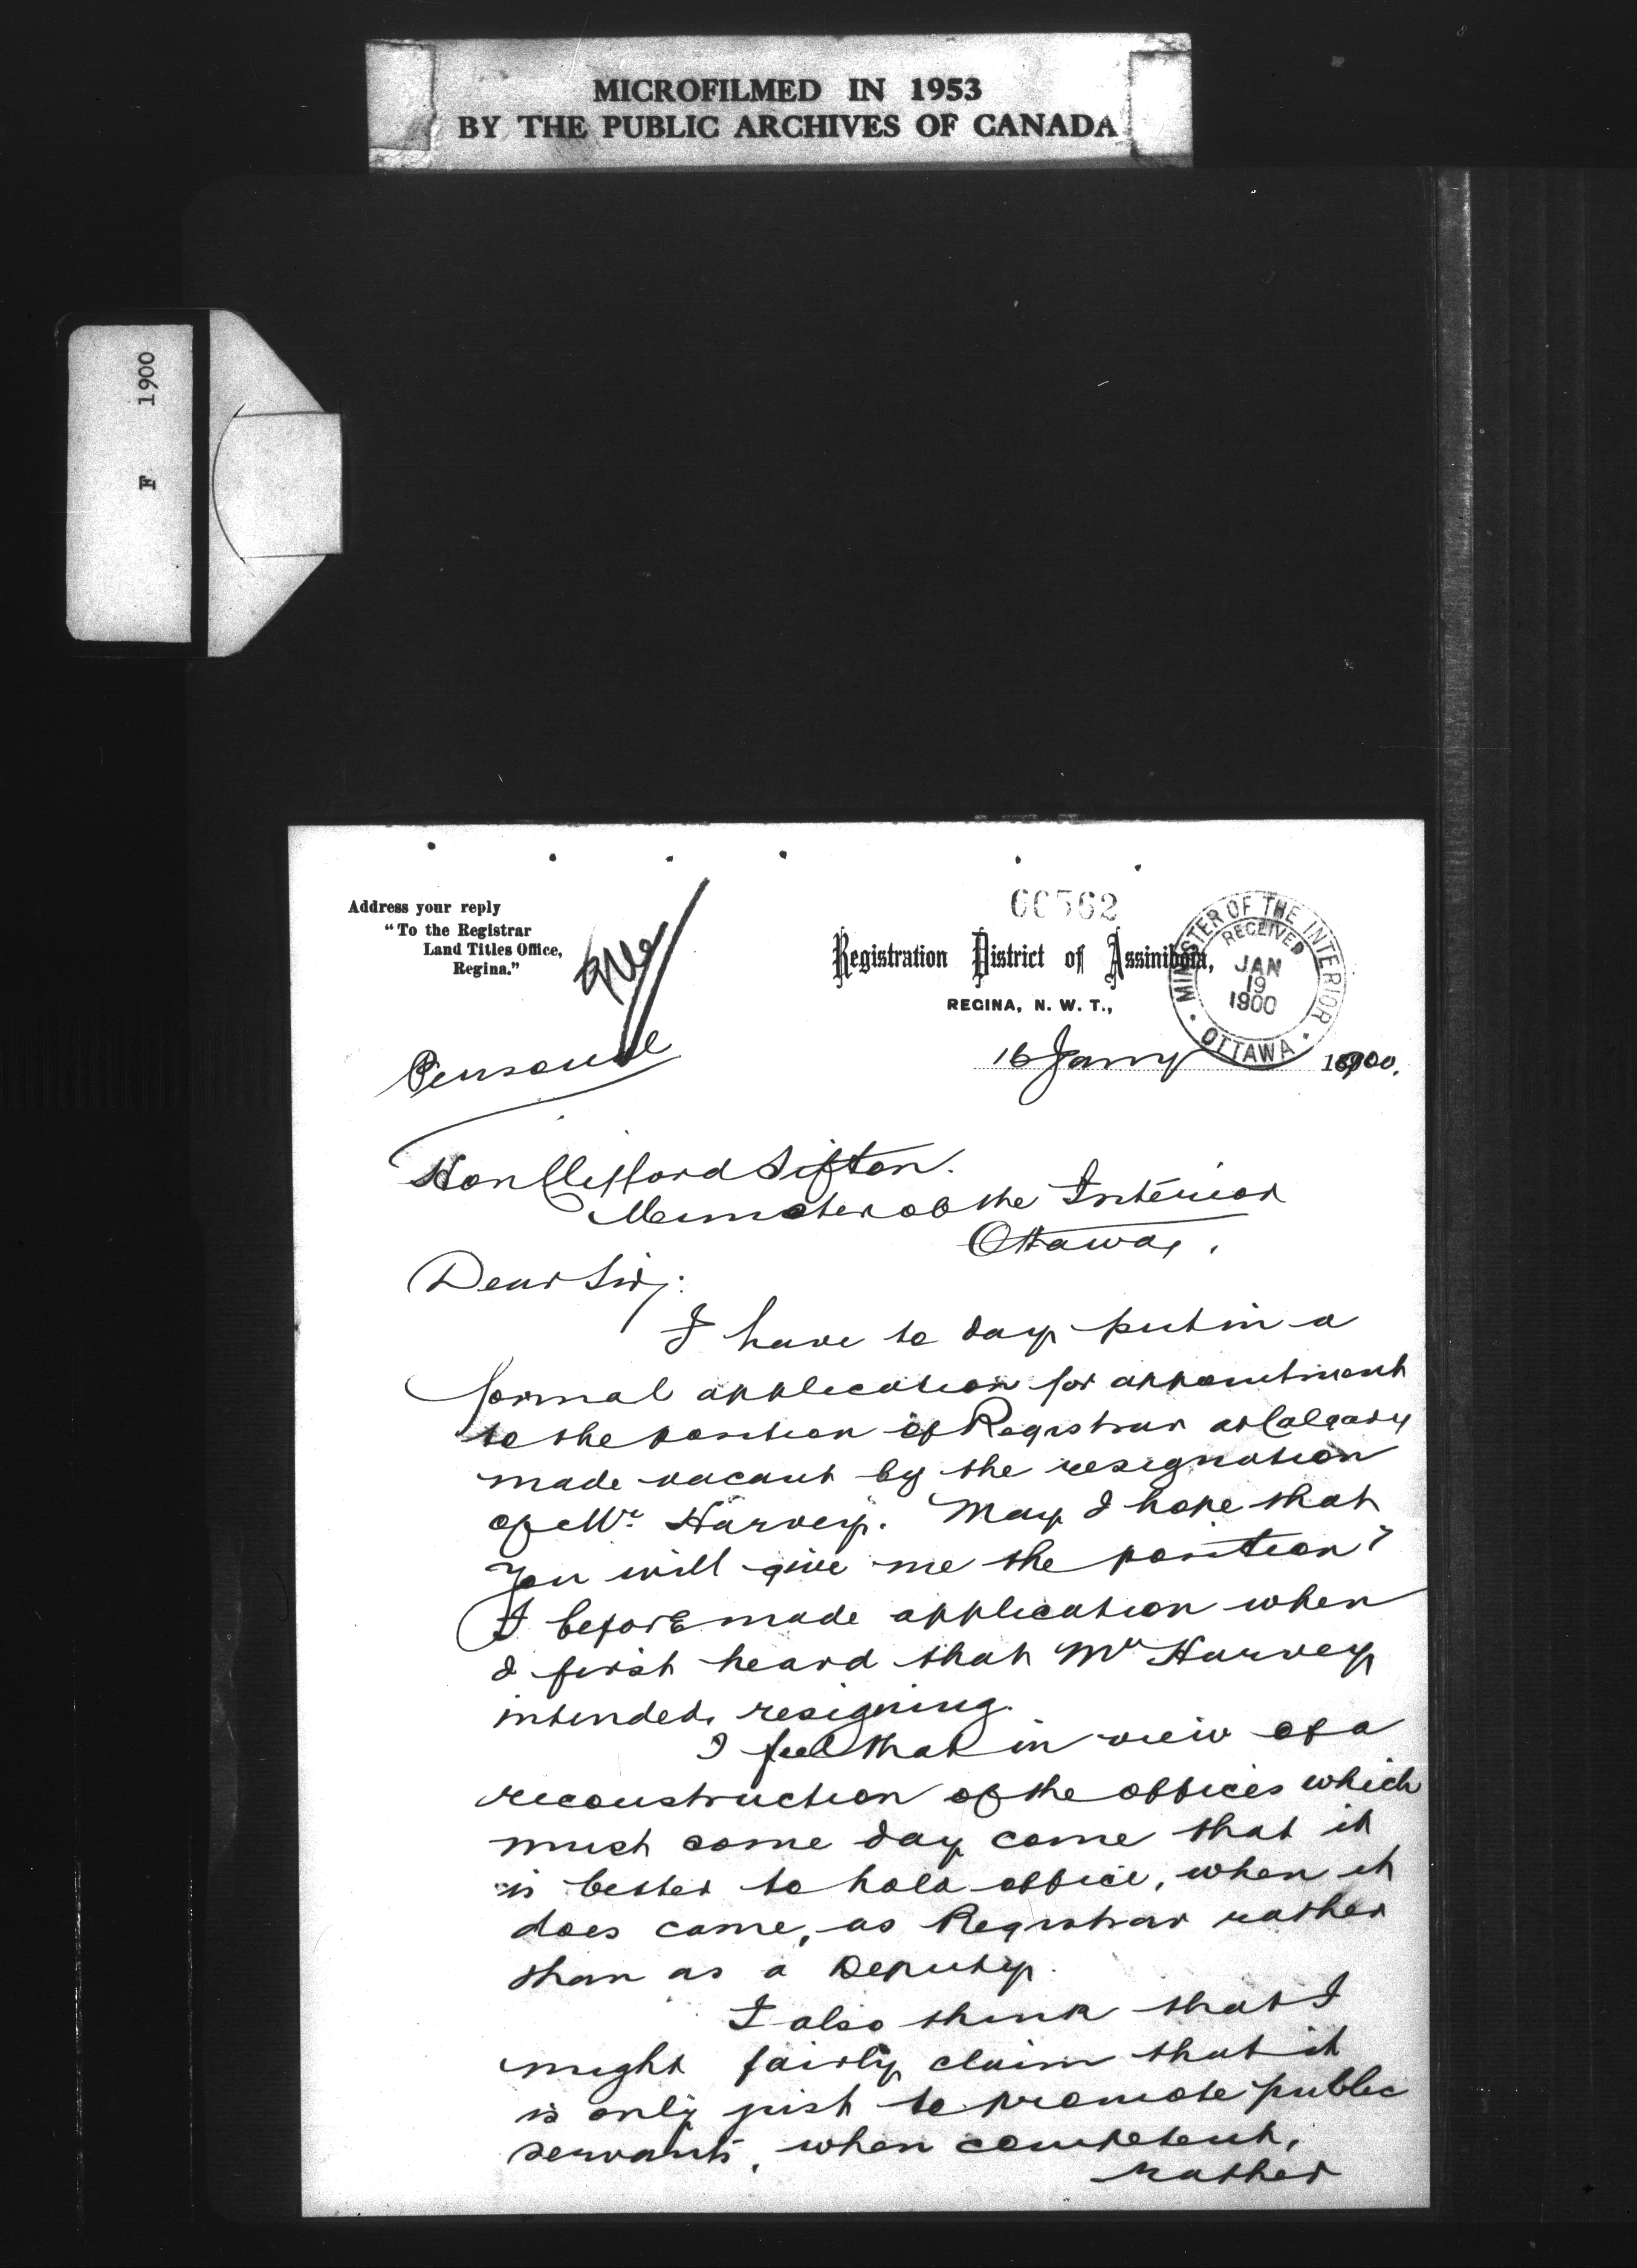 MICROFILMED IN 1953
BY THE PUBLIC ARCHIVES OF CANADA
F 1900
Address your reply
"To the Registrar
Land Titles Office,
Regina."
66562
Registration District of Assiniboia,
REGINA, N. W. T.,
MINISTER OF THE INTERIOR
RECEIVED
JAN
19
1900
OTTAWA
Personal
16 Jany 1900.
Hon Clifford Sifton.
Minister of the Interior
Ottawa.
Dear Sir;
I have to day put in a
formal application for appointment
to the position of Registrar at Calgary
made vacant by the resignation
of Mr. Harvey. May I hope that
you will give me the position?
I before made application when
I first heard that Mr Harvey
intended resigning.
I feel that in view of a
reconstruction of the offices which
must some day come that it
is better to hold office, when it
does come, as Registrar rather
than as a Deputy.
I also think that I
might fairly claim that it
is only just to promote public
servants, when competent,
rather